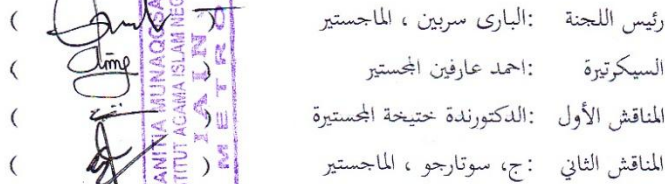 رئيس اللجنة :البارى سربين ، الماجستير ( )
السيكرتيرة :احمد عارفين المجستير ( )
المناقش الأول :الدكتورندة ختيخة المجستيرة ( )
المناقش الثاني :ج، سوتارجو ، الماجستير ( )
ANITIA MUNAQOSA
STITUT AGAMA ISLAM NEG
IAIN
METRO